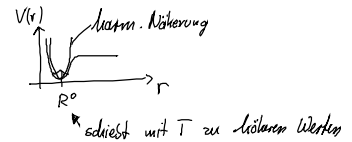 V(r)
harm. Näherung
r
R⁰
schiebt mit T zu höheren Werten